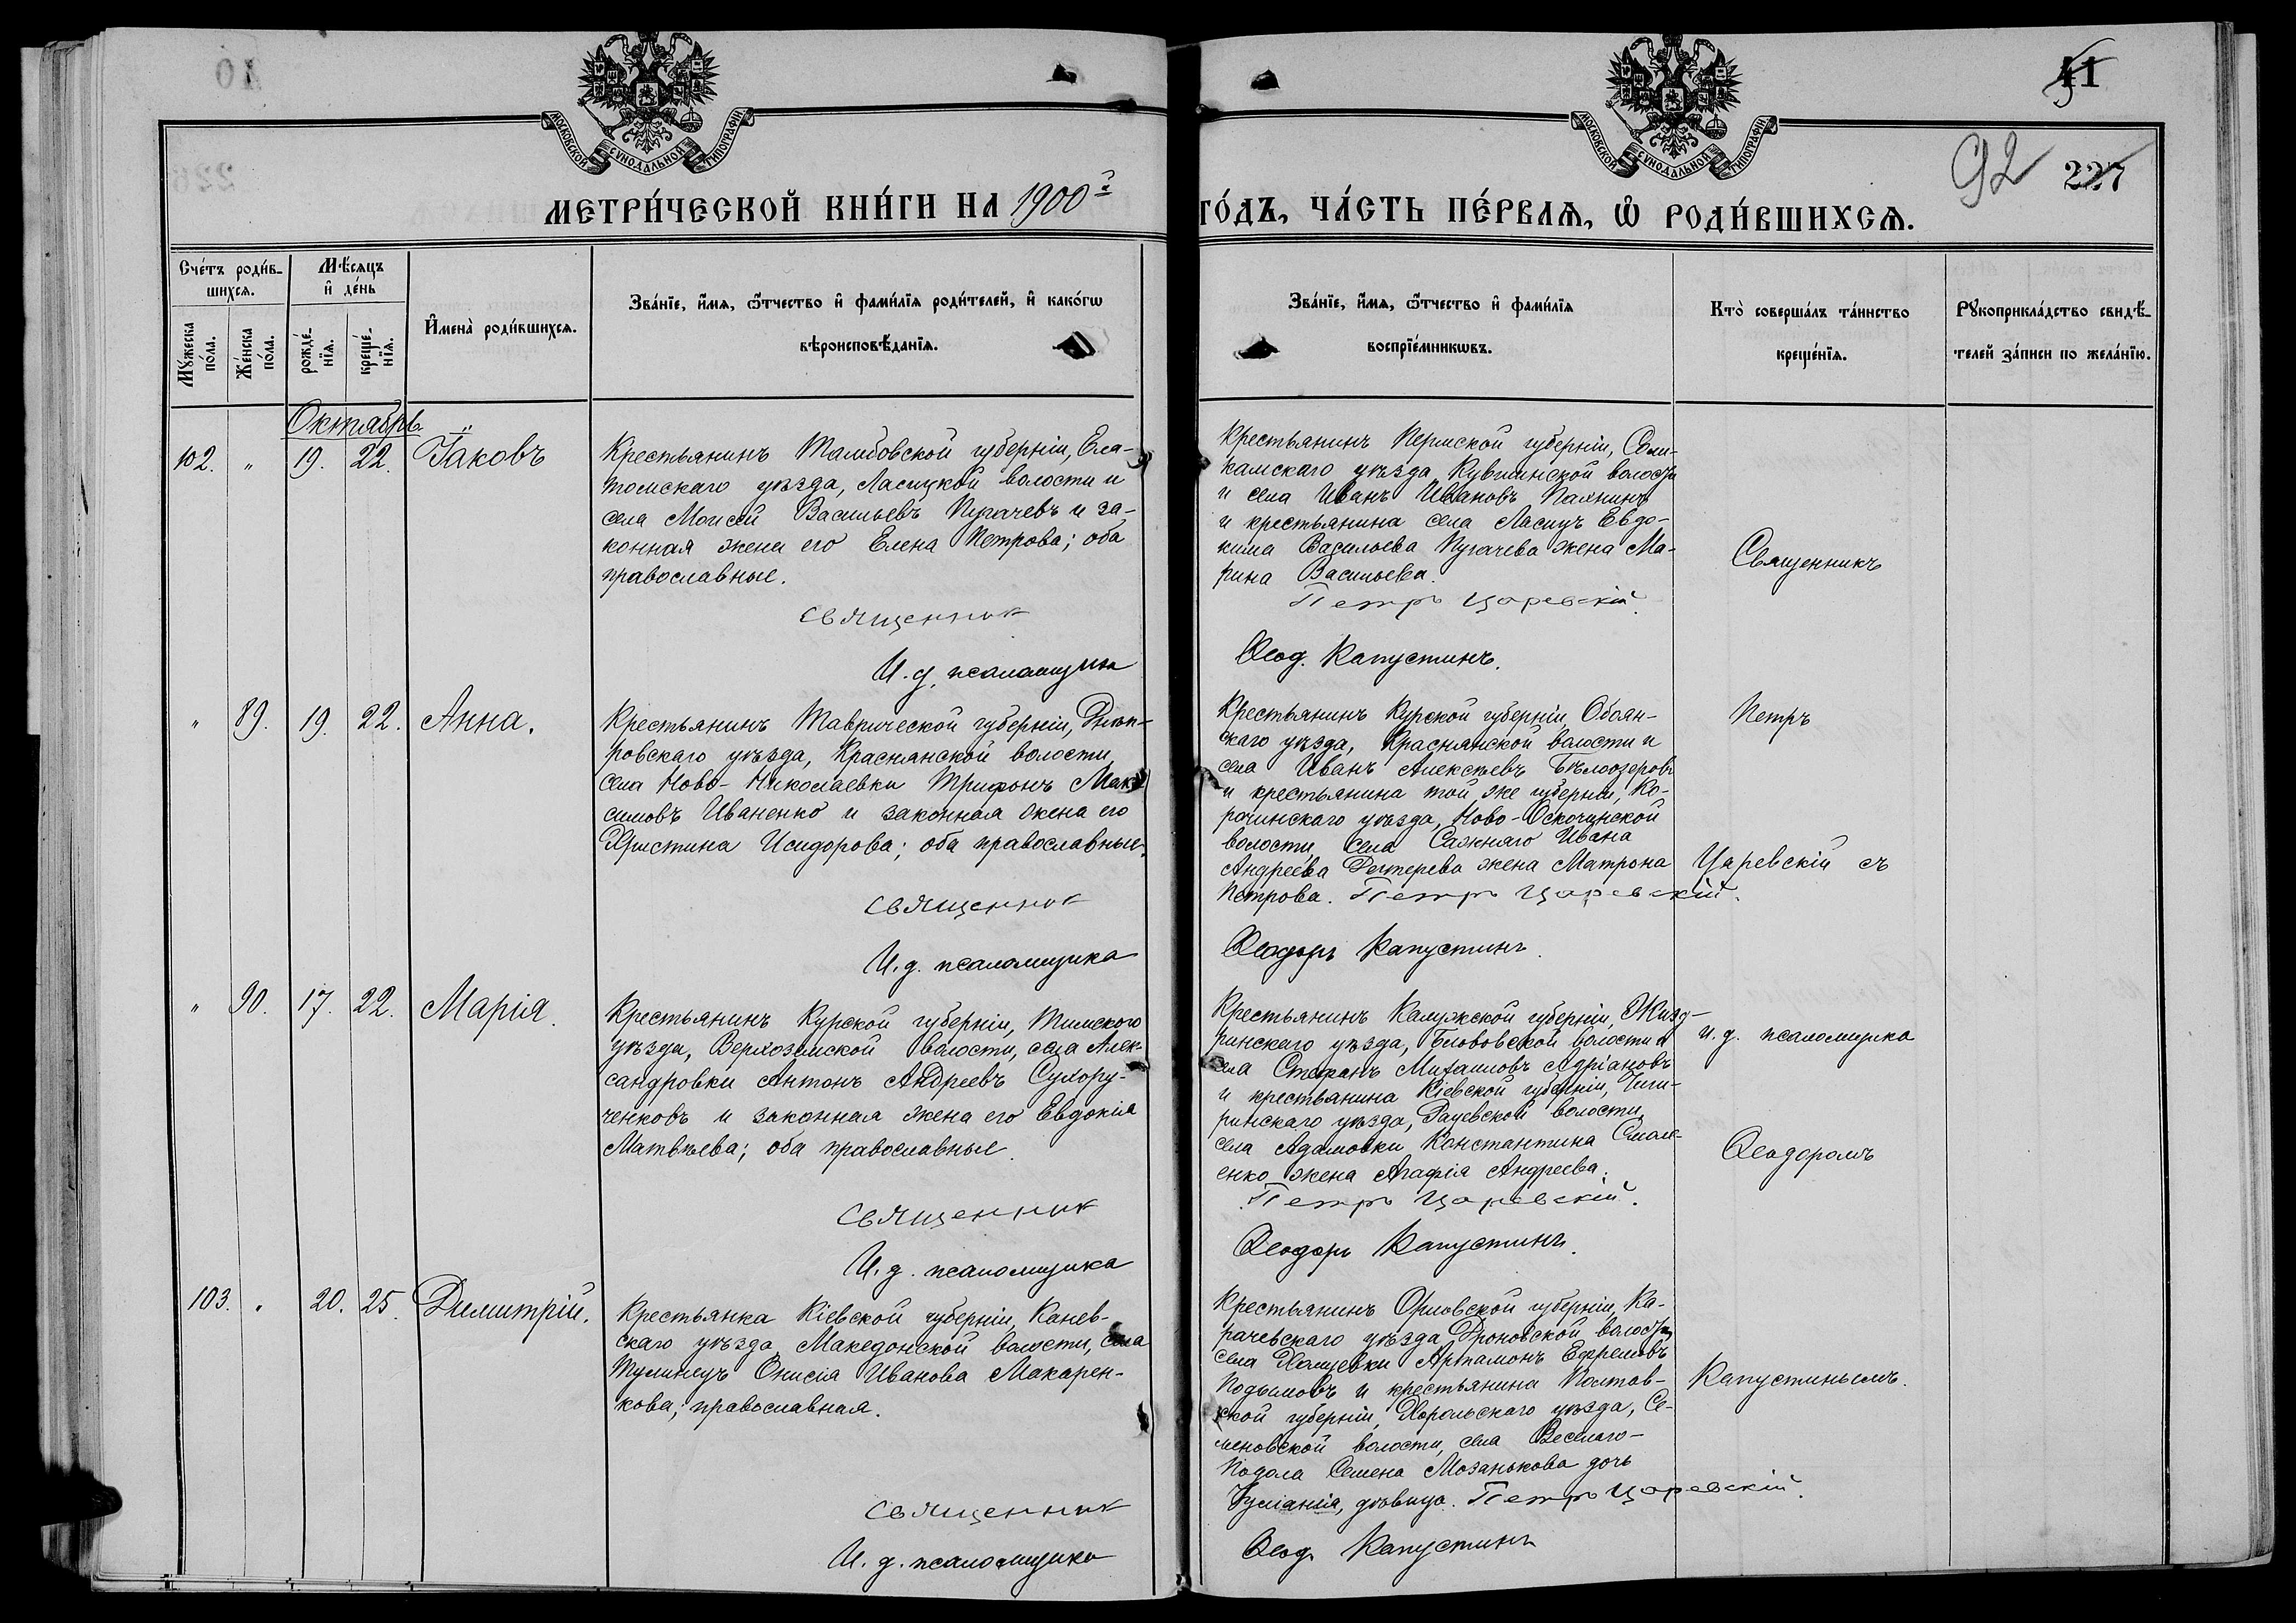 41
92 227
МОСКОВСКОЙ СУНОДАЛЬНОЙ ТИПОГРАФІИ
МОСКОВСКОЙ СУНОДАЛЬНОЙ ТИПОГРАФІИ
МЕТРИ́ЧЕСКОЙ КНИ́ГИ НА 1900й
ГО́ДЪ, ЧА́СТЬ ПЕ́РВАЯ, Ѿ РОДИ́ВШИХСЯ.
Сче́тъ роди́в-
шихся.
Мѣ́сяцъ
и҆ де́нь
Мꙋ́жеска
по́ла.
Же́нска
по́ла.
рожде́-
нїя.
креще́-
нїя.
И҆мена̀ роди́вшихся.
Зва́нїе, и҆́мя, ѻ҆́тчество и҆ фами́лїя роди́телей, и҆ како́гѡ
вѣроисповѣ́данїя.
Зва́нїе, и҆́мя, ѻ҆́тчество и҆ фами́лїя
воспрїе́мникѡвъ.
Кто̀ соверша́лъ та́инство
креще́нїя.
Рꙋкоприкла́дство свидѣ́-
телей за́писи по жела́нїю.
Октябрь
102. " 19. 22. Іаковъ
Крестьянинъ Тамбовской губерніи, Ела-
томскаго уѣзда, Ласицкой волости и
села Моисей Васильевъ Пугачевъ и за-
конная жена его Елена Петрова; оба
православные.
священник
И. д. псаломщика
Крестьянинъ Пермской губерніи, Соли-
камскаго уѣзда, Кувшинской волости
и села Иванъ Ивановъ Палкинъ
и крестьянина села Ласицъ Евдо-
кима Васильева Пугачева жена Ма-
рина Васильева.
Петръ Царевскій.
Ѳеод. Капустинъ.
Священникъ
" 89. 19. 22. Анна.
Крестьянинъ Таврической губерніи, Днѣп-
ровскаго уѣзда, Краснянской волости
села Ново-Николаевки Трифонъ Мак-
симовъ Иваненко и законная жена его
Христина Исидорова; оба православные.
священник
И. д. псаломщика
Крестьянинъ Курской губерніи, Обоян-
скаго уѣзда, Краснянской волости и
села Иванъ Алексѣевъ Бѣлоозеровъ
и крестьянина той же губерніи, Ко-
рочинскаго уѣзда, Ново-Оскочинской
волости, села Сажнаго Ивана
Андреева Дегтерева жена Матрона
Петрова. Петръ Царевскій.
Ѳеодоръ Капустинъ.
Петръ
Царевскій съ
" 90. 17. 22. Марія.
Крестьянинъ Курской губерніи, Тимскаго
уѣзда, Верхоземской волости, села Алек-
сандровки Антонъ Андреевъ Сухору-
ченковъ и законная жена его Евдокія
Матвѣева; оба православные.
священник
И. д. псаломщика
Крестьянинъ Калужской губерніи, Жизд-
ринскаго уѣзда, волости и
села Стефанъ Михаиловъ Адріановъ
и крестьянина Кіевской губерніи, Чиги-
ринскаго уѣзда, Рацевской волости,
села Адамовки Константина Смол-
енко жена Агафія Андреева.
Петръ Царевскій.
Ѳеодоръ Капустинъ.
и. д. псаломщика
Ѳеодоромъ
103. " 20. 25. Димитрій.
Крестьянка Кіевской губерніи, Канев-
скаго уѣзда, Македонской волости, села
Тулинецъ Онисія Иванова Макарен-
кова, православная.
священник
И. д. псаломщика
Крестьянинъ Орловской губерніи, Ка-
рачевскаго уѣзда Дроновской волости,
села Хащевки Артамонъ Ефремовъ
Подымовъ и крестьянина Полтав-
ской губерніи, Хорольскаго уѣзда, Се-
меновской волости, села Веселаго-
Подола Семена Мозанькова дочь
Іуліанія, дѣвица. Петръ Царевскій.
Ѳеод. Капустинъ
Капустинымъ.